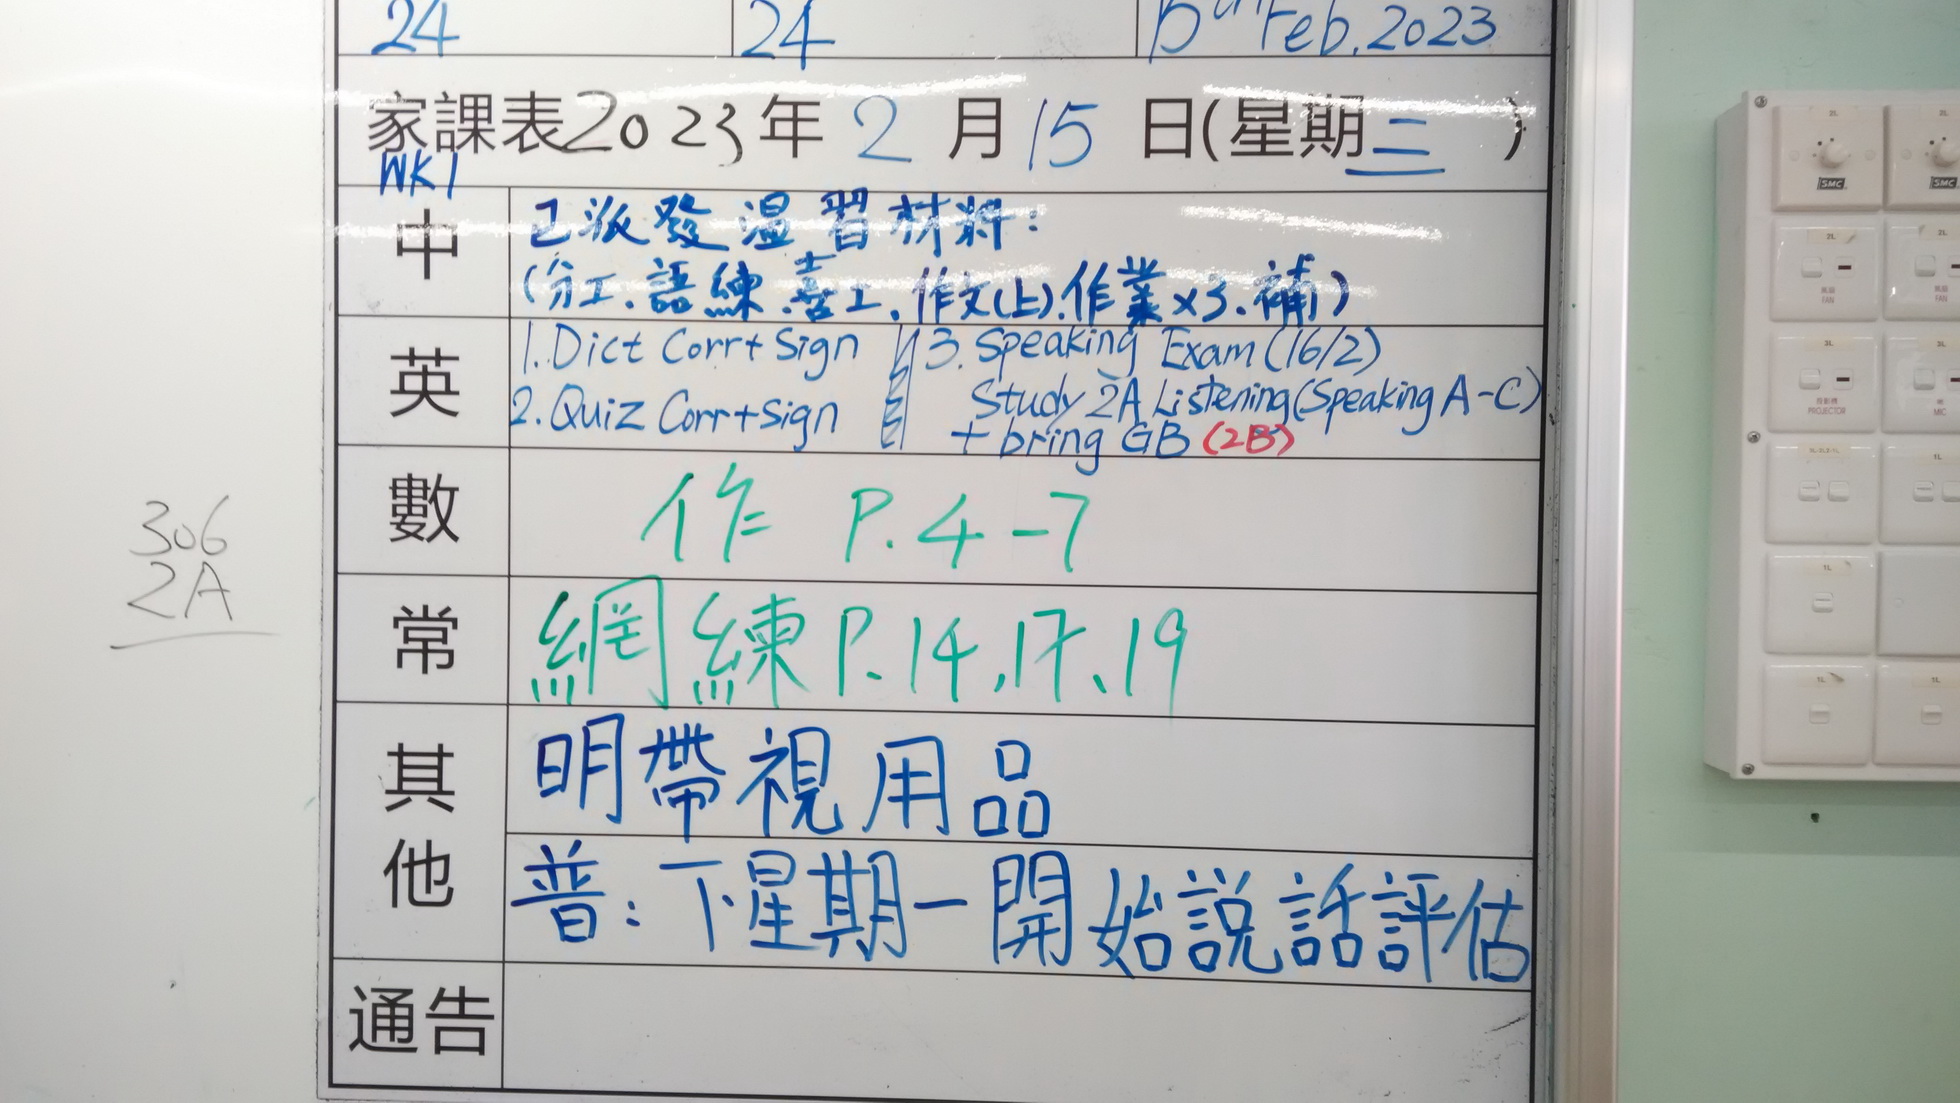 24 24 15th Feb. 2023
家課表2023年 2 月 15 日(星期三 )
WK1
中 已派發溫習材料:
(分工、語練、書工、作文(上)、作業x3、補)
英 1. Dict Corr+Sign 3. Speaking Exam (16/2)
2. Quiz Corr+Sign Study 2A Listening (Speaking A-C)
+ bring GB (2B)
數 作 P. 4-7
常 網練 P. 14, 17、19
其他 明帶視用品
普: 下星期一開始說話評估
通告
306
2A
SMC
SMC
FAN
FAN
PROJECTOR
MIC